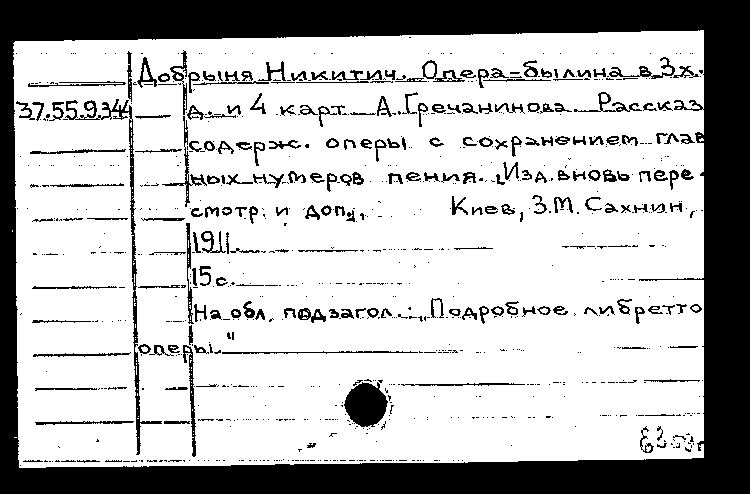 Добрыня Никитич. Опера-былина в 3х.
37.55.9.344 д. и 4 карт. А. Гречанинова. Рассказ
содерж. оперы с сохранением глав
ных нумеров пения. „Изд. вновь пере-
смотр. и доп.„. Киев, З.М. Сахнин,
1911.
15 с.
На обл. подзагол.: „Подробное либретто
оперы."